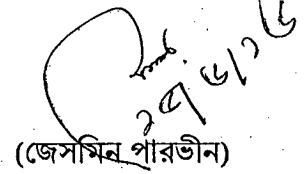 ২৭/৬/১৬
(জেসমিন পারভীন)